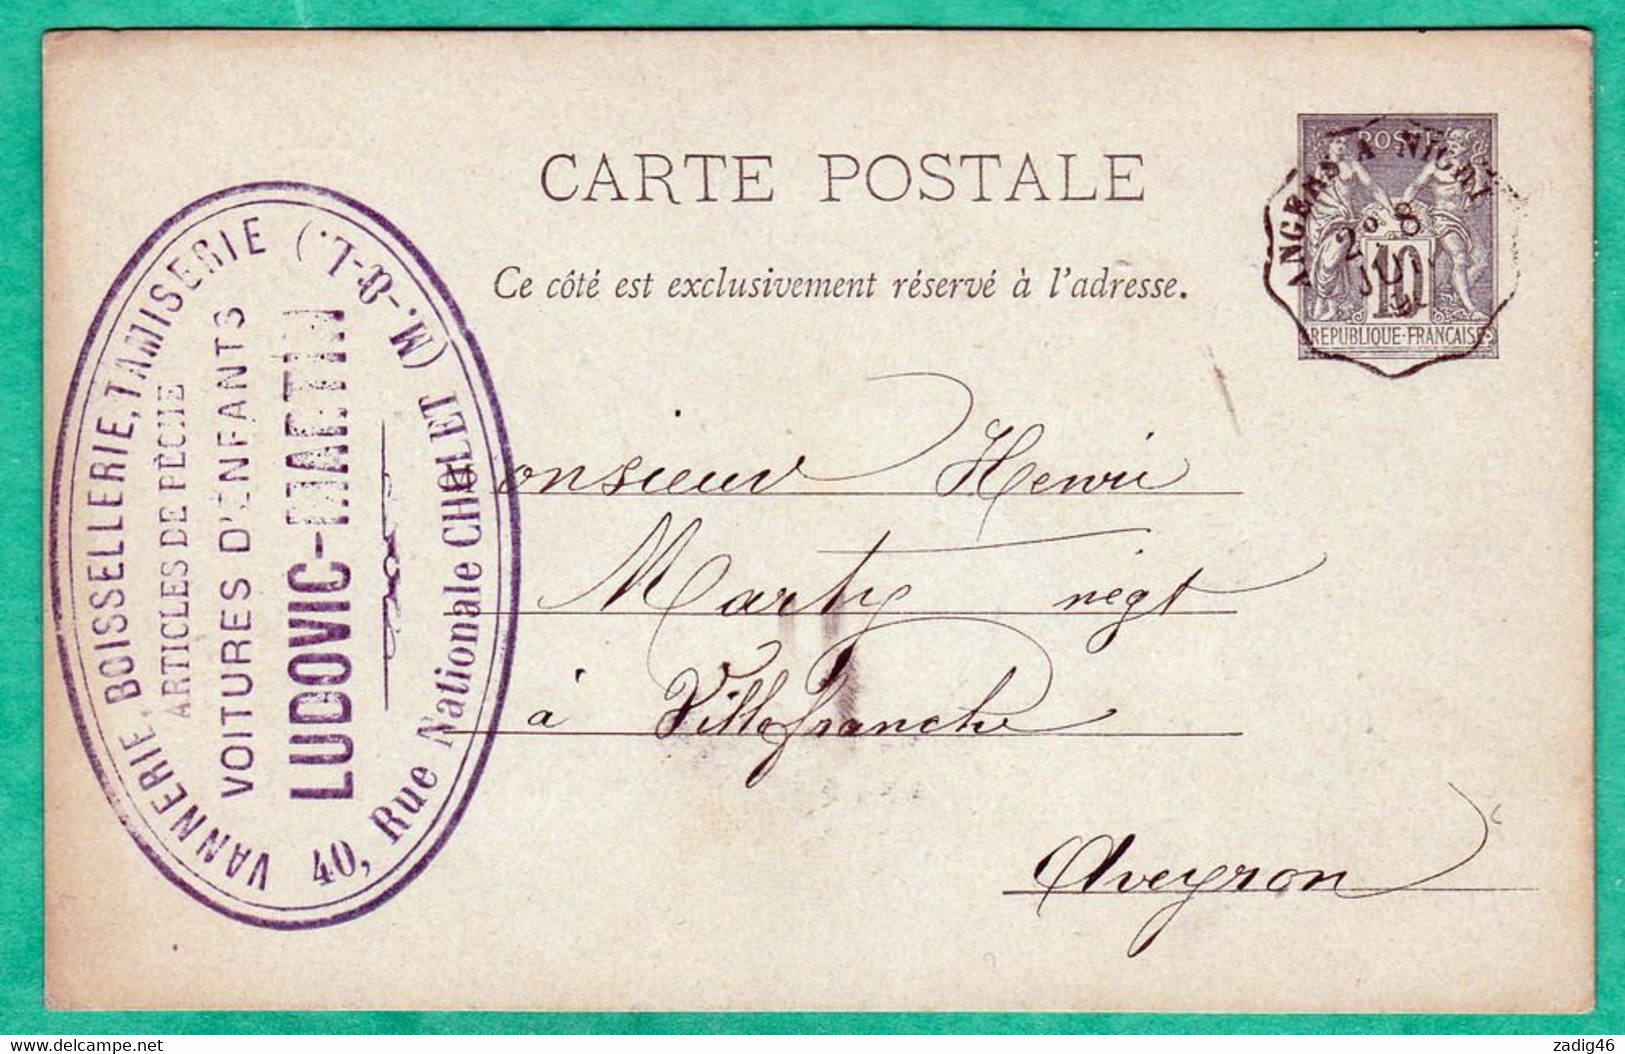 CARTE POSTALE
Ce côté est exclusivement réservé à l'adresse.
POSTE
10
REPUBLIQUE·FRANÇAISE
ANGERS A NIORT
2º 8
JUIN
VANNERIE, BOISSELLERIE, TAMISERIE
ARTICLES DE PÊCHE
VOITURES D'ENFANTS
LUDOVIC-MARTIN
40, Rue Nationale CHOLET (M.-&-L.)
Monsieur Henri
Marty négt
à Villefranche
Aveyron
www.delcampe.net
zadig46